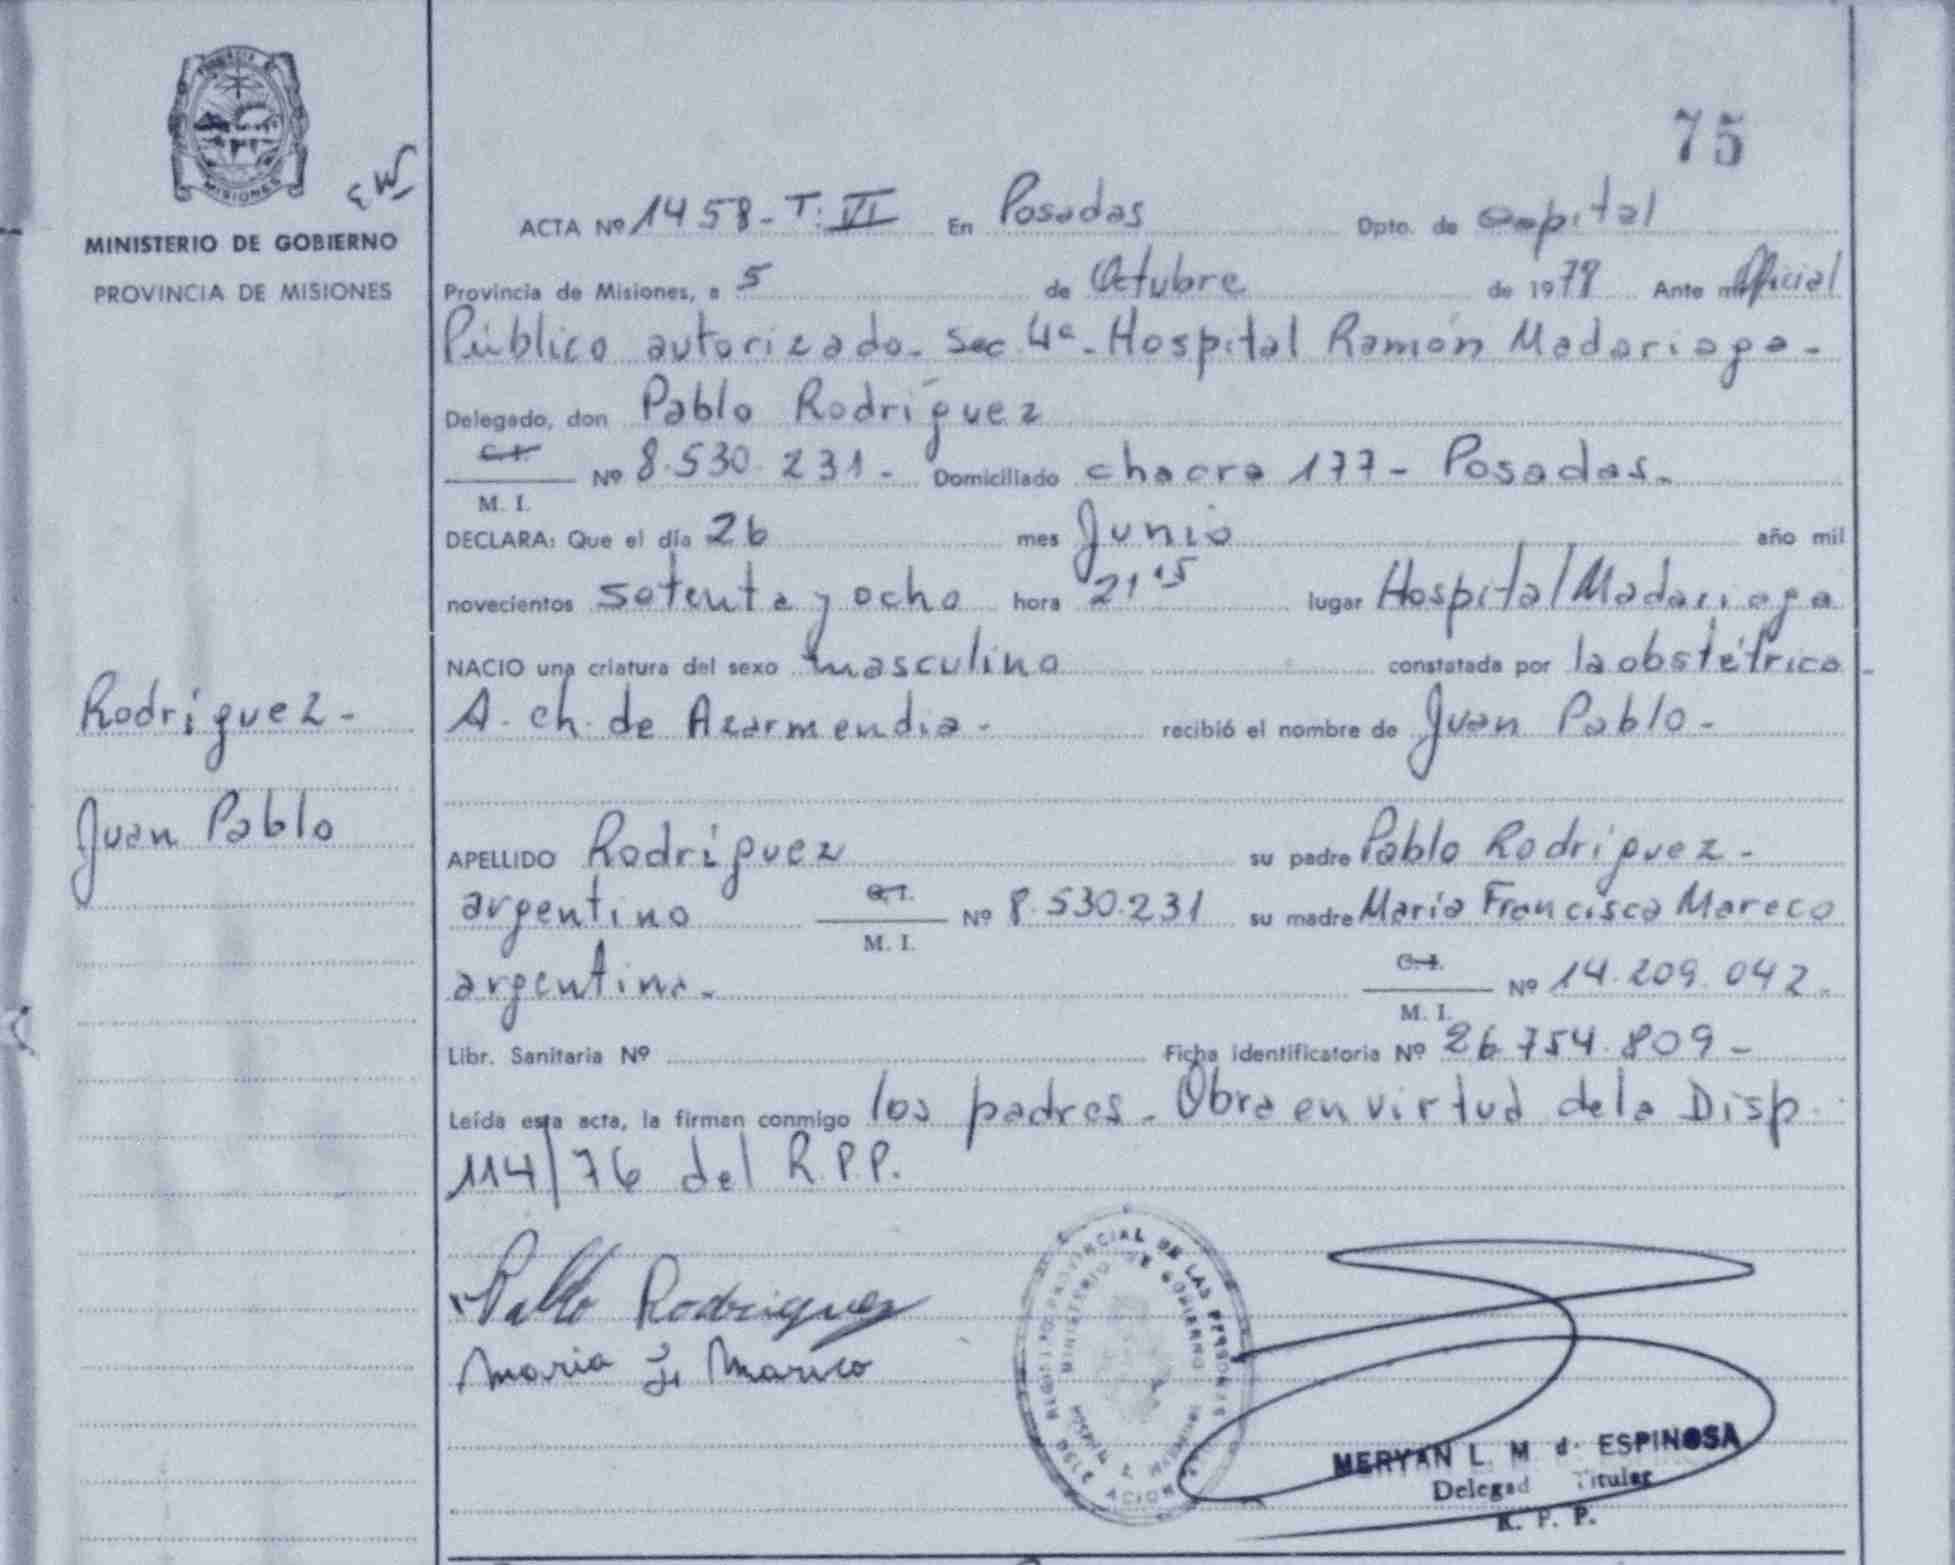 75
MISIONES
MINISTERIO DE GOBIERNO
PROVINCIA DE MISIONES
ACTA Nº 1458-T: VI En Posadas Dpto. de Capital
Provincia de Misiones, a 5 de Octubre de 1978 Ante mí Oficial
Público autorizado. Sec 4ª. Hospital Ramón Madariaga.
Delegado, don Pablo Rodríguez
C. I.
M. I. Nº 8.530.231. Domiciliado chacra 177 - Posadas.
DECLARA: Que el día 26 mes Junio año mil
novecientos setenta y ocho hora 21'15 lugar Hospital Madariaga
NACIO una criatura del sexo masculino constatada por la obstétrica
A. ch. de Azarmendia. recibió el nombre de Juan Pablo.
Rodríguez.
Juan Pablo
APELLIDO Rodríguez su padre Pablo Rodríguez.
argentino C. I.
M. I. Nº 8.530.231 su madre María Francisca Mareco
argentina. C. I.
M. I. Nº 14.209.042.
Libr. Sanitaria Nº Ficha identificatoria Nº 26.754.809 -
Leída esta acta, la firman conmigo los padres. Obra en virtud de la Disp.
114/76 del R.P.P.
Pablo Rodriguez
Maria F. Mareco
PROVINCIAL DE LAS PERSONAS
MINISTERIO DE GOBIERNO
MERYAN L. M. d. ESPINOSA
Delegad Titular
R. P. P.